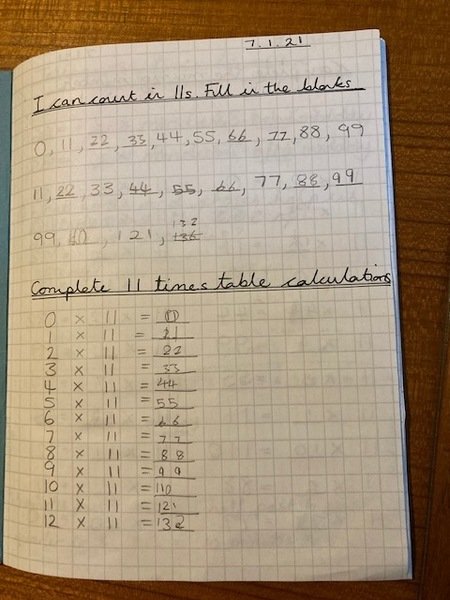 7.1.21
I can count in 11s. Fill in the blanks
0, 11, 22, 33, 44, 55, 66, 77, 88, 99
11, 22, 33, 44, 55, 66, 77, 88, 99
132
99, 121, 136
Complete 11 times table calculations
0 x 11 = 0
1 x 11 = 
2 x 11 = 22
3 x 11 = 33
4 x 11 = 44
5 x 11 = 55
6 x 11 = 66
7 x 11 = 77
8 x 11 = 88
9 x 11 = 99
10 x 11 = 110
11 x 11 = 121
12 x 11 = 132